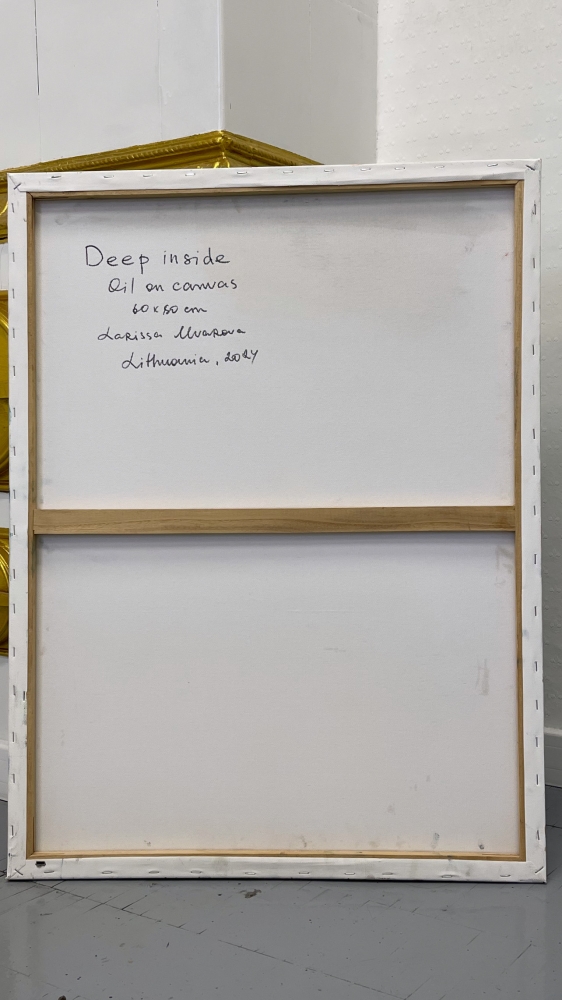 Deep inside
Oil on canvas
60 x 80 cm
Larissa Uvarova
Lithuania, 2024